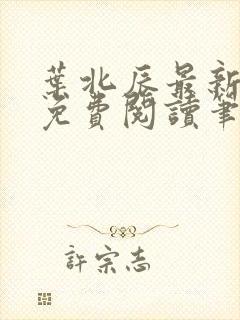 葉北辰最新
免費閱讀筆
許宗志